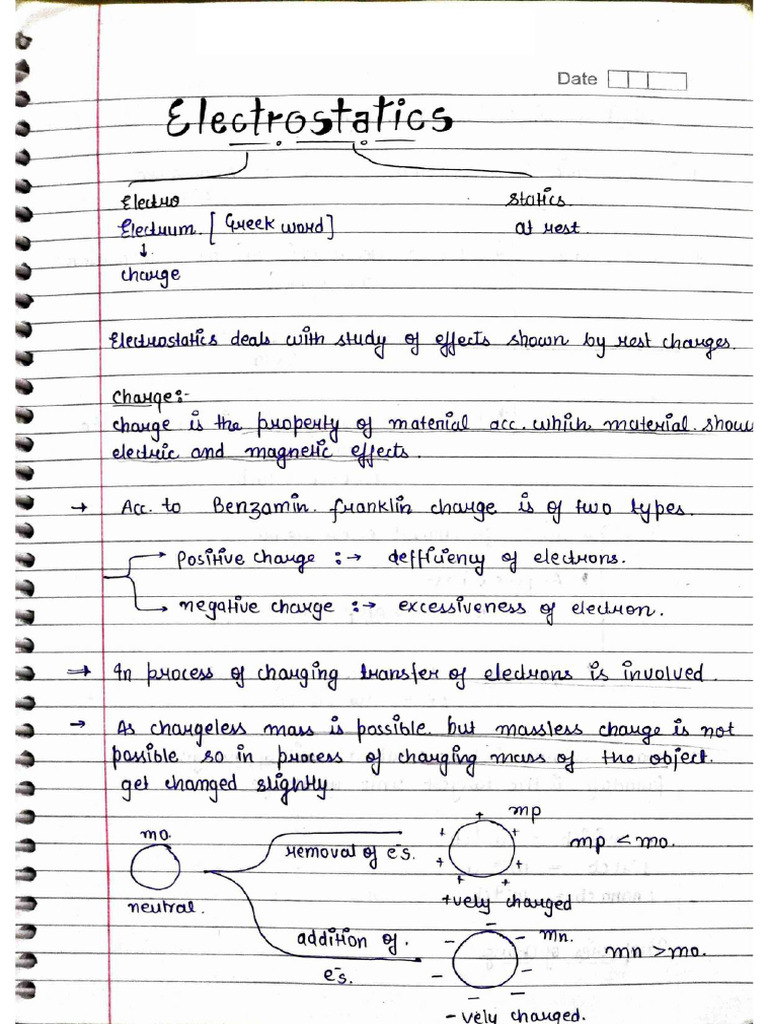 Date
Electrostatics
Electro statics
Electrum. [Greek word] at rest.
↓
charge
Electrostatics deals with study of effects shown by rest charges.
Charge:-
charge is the property of material acc. which material show
electric and magnetic effects.
→ Acc. to Benzamin. franklin charge is of two types.
→ positive charge :→ defficiency of electrons.
→ negative charge :→ excessiveness of electron.
⇒ In process of charging transfer of electrons is involved.
→ As chargeless mass is possible. but massless charge is not
possible so in process of charging mass of the object.
get changed slightly.
mo.
neutral.
removal of e-s.
+ + + + + + +
mp
mp < mo.
+vely charged
addition of.
e-s.
- - - - - - -
mn.
mn > mo.
-vely charged.